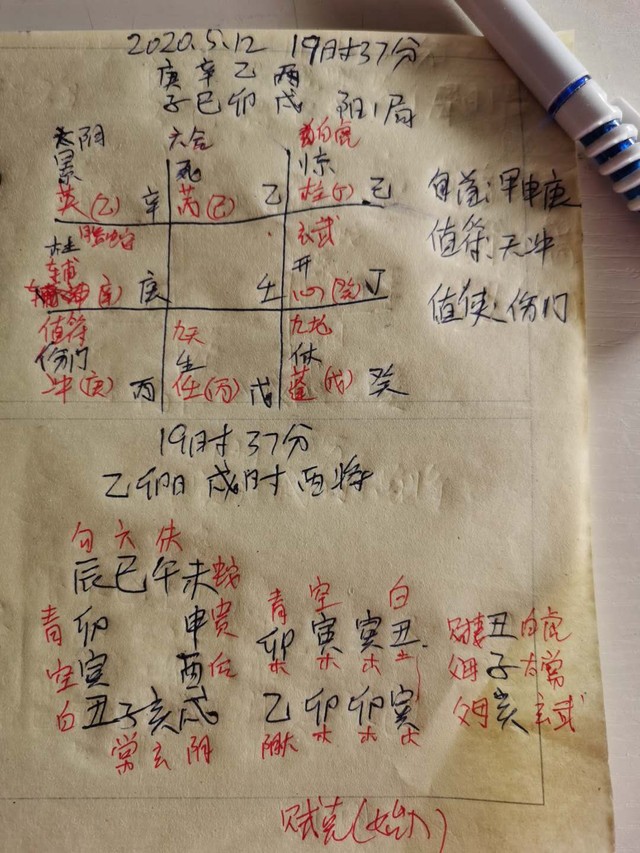 2020.5.12 19时37分
庚辛乙丙
子巳卯戌 阳1局
太阴 六合 白虎
景 死 惊
英(乙) 辛 芮(己) 乙 柱(丁) 己
旬首:甲申庚
腾蛇 玄武
杜 开
辅 庚 壬 心(癸) 丁
值符:天冲
值使:伤门
值符 九天 九地
伤门 生 休
冲(庚) 丙 任(丙) 戊 蓬(戊) 癸
19时37分
乙卯日 戌时 酉将
勾 六 朱
辰 巳 午 未 蛇
青 卯 申 贵
空 寅 酉 后
白 丑 子 亥 戌
常 玄 阴
青 空 白
卯 寅 寅 丑
木 木 木 土
乙 卯 卯 寅
木 木 木
丑 白虎
父母 子 太常
父母 亥 玄武
贼克(始入)